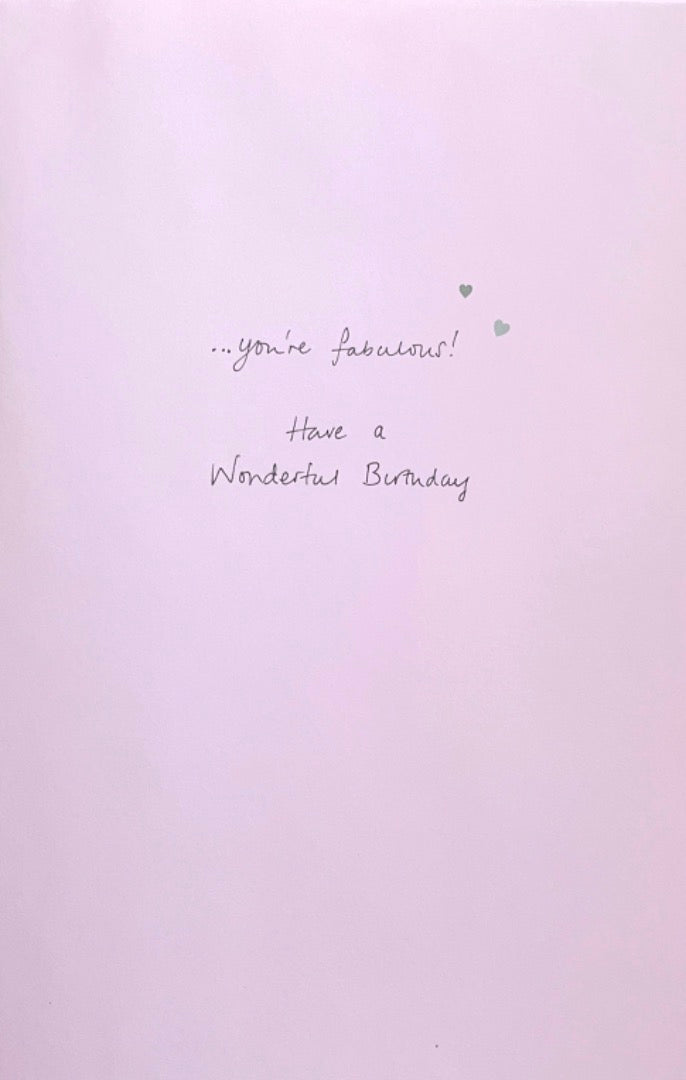 ...you're fabulous!
Have a
Wonderful Birthday